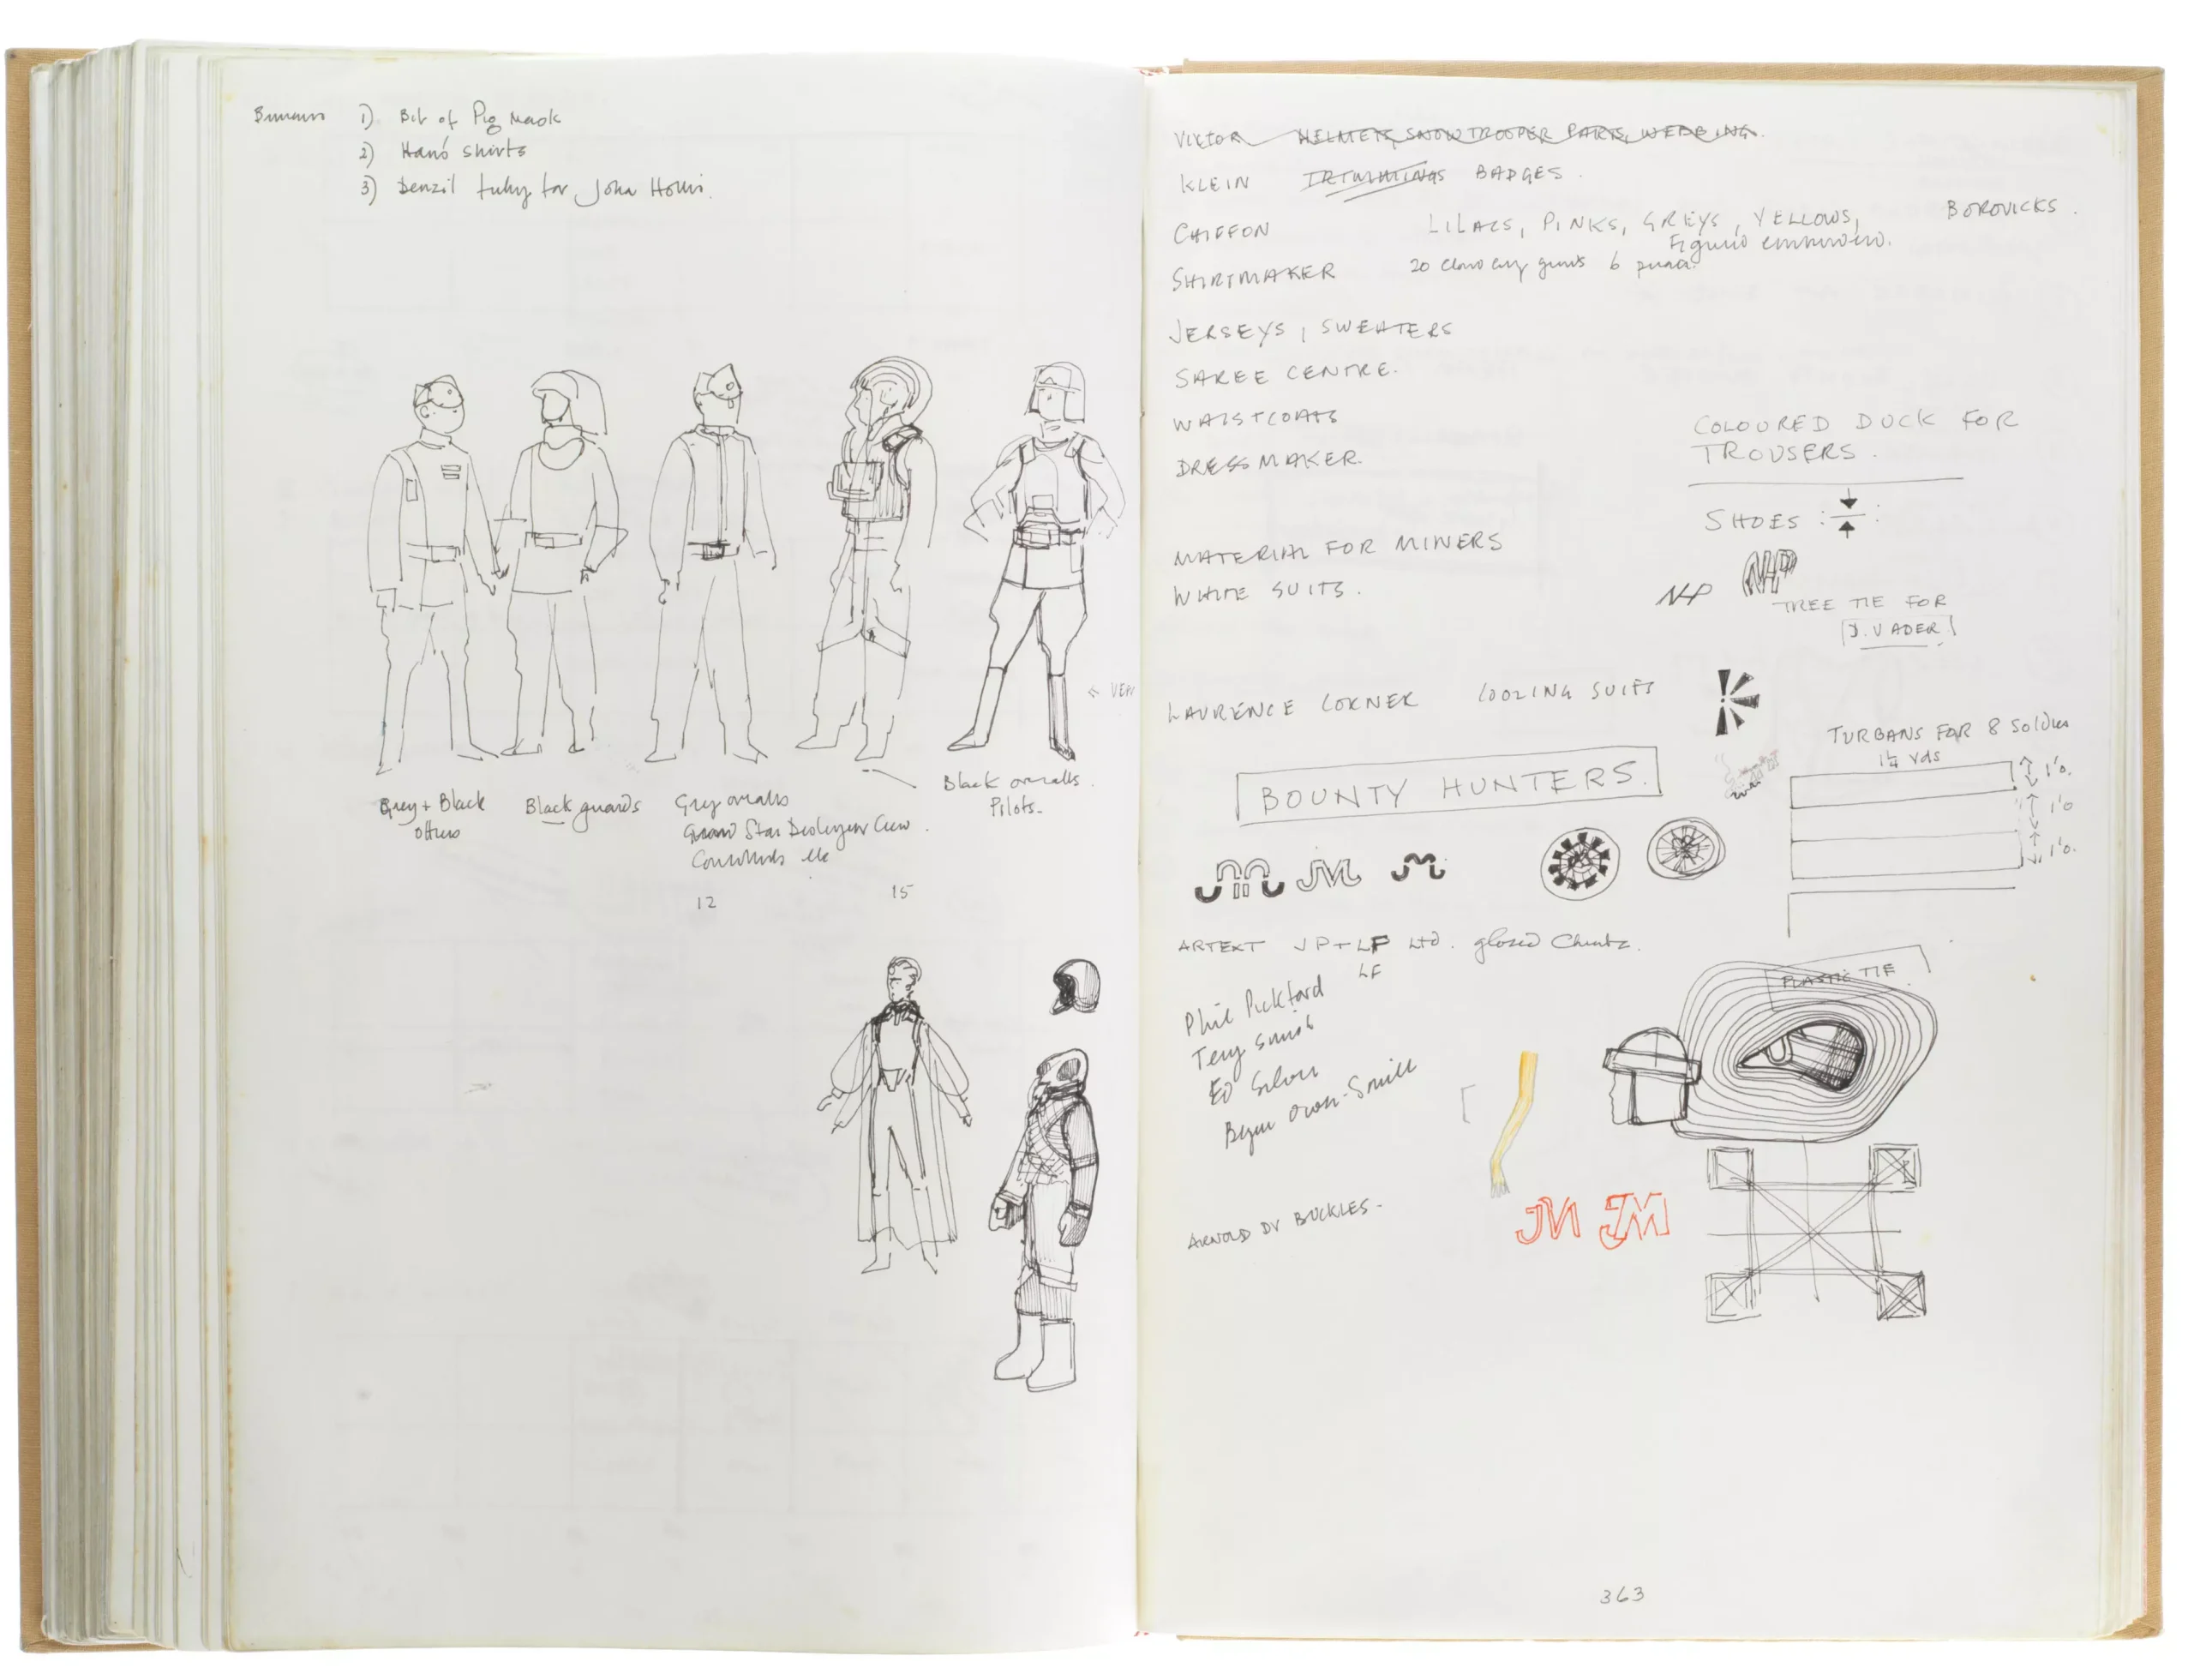 1) Bit of Pig Mask
2) Hans shirts
3) Denzil for John Hollis.
Grey + Black
Black guards
Grey overalls
Star Destroyer Crew
etc
12
15
Black overalls.
Pilots.
VIKTOR HELMETS, SNOWTROOPER PARTS, WEBBING.
KLEIN TRIMMINGS BADGES.
CHIFFON LILACS, PINKS, GREYS, YELLOWS, BOROVICKS.
SHIRTMAKER 20 6
JERSEYS, SWEATERS
SAREE CENTRE.
WAISTCOATS
DRESSMAKER.
COLOURED DUCK FOR
TROUSERS.
SHOES
MATERIAL FOR MINERS
WHITE SUITS.
NP NP
TREE TIE FOR
D. VADER
LAURENCE CORNER COOLING SUITS
TURBANS FOR 8 Soldiers
1¼ Yds
1'0.
1'0
1'0.
BOUNTY HUNTERS.
M JM M
ARTEXT JP + LP Ltd. glazed Chintz.
LF
Phil Pickford
Terry Smith
Ed Silver
Owen-Smith
PLASTIC TIE
ARNOLD DV BUCKLES.
JM JM
363